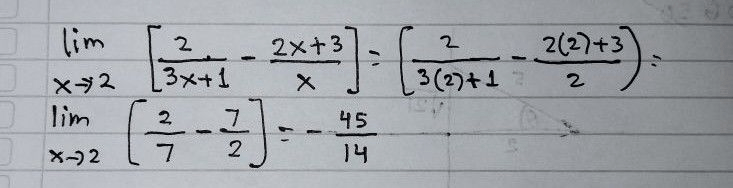 lim x→2 [2/(3x+1) - (2x+3)/x] = [2/(3(2)+1) - (2(2)+3)/2) =
lim x→2 [2/7 - 7/2] = - 45/14